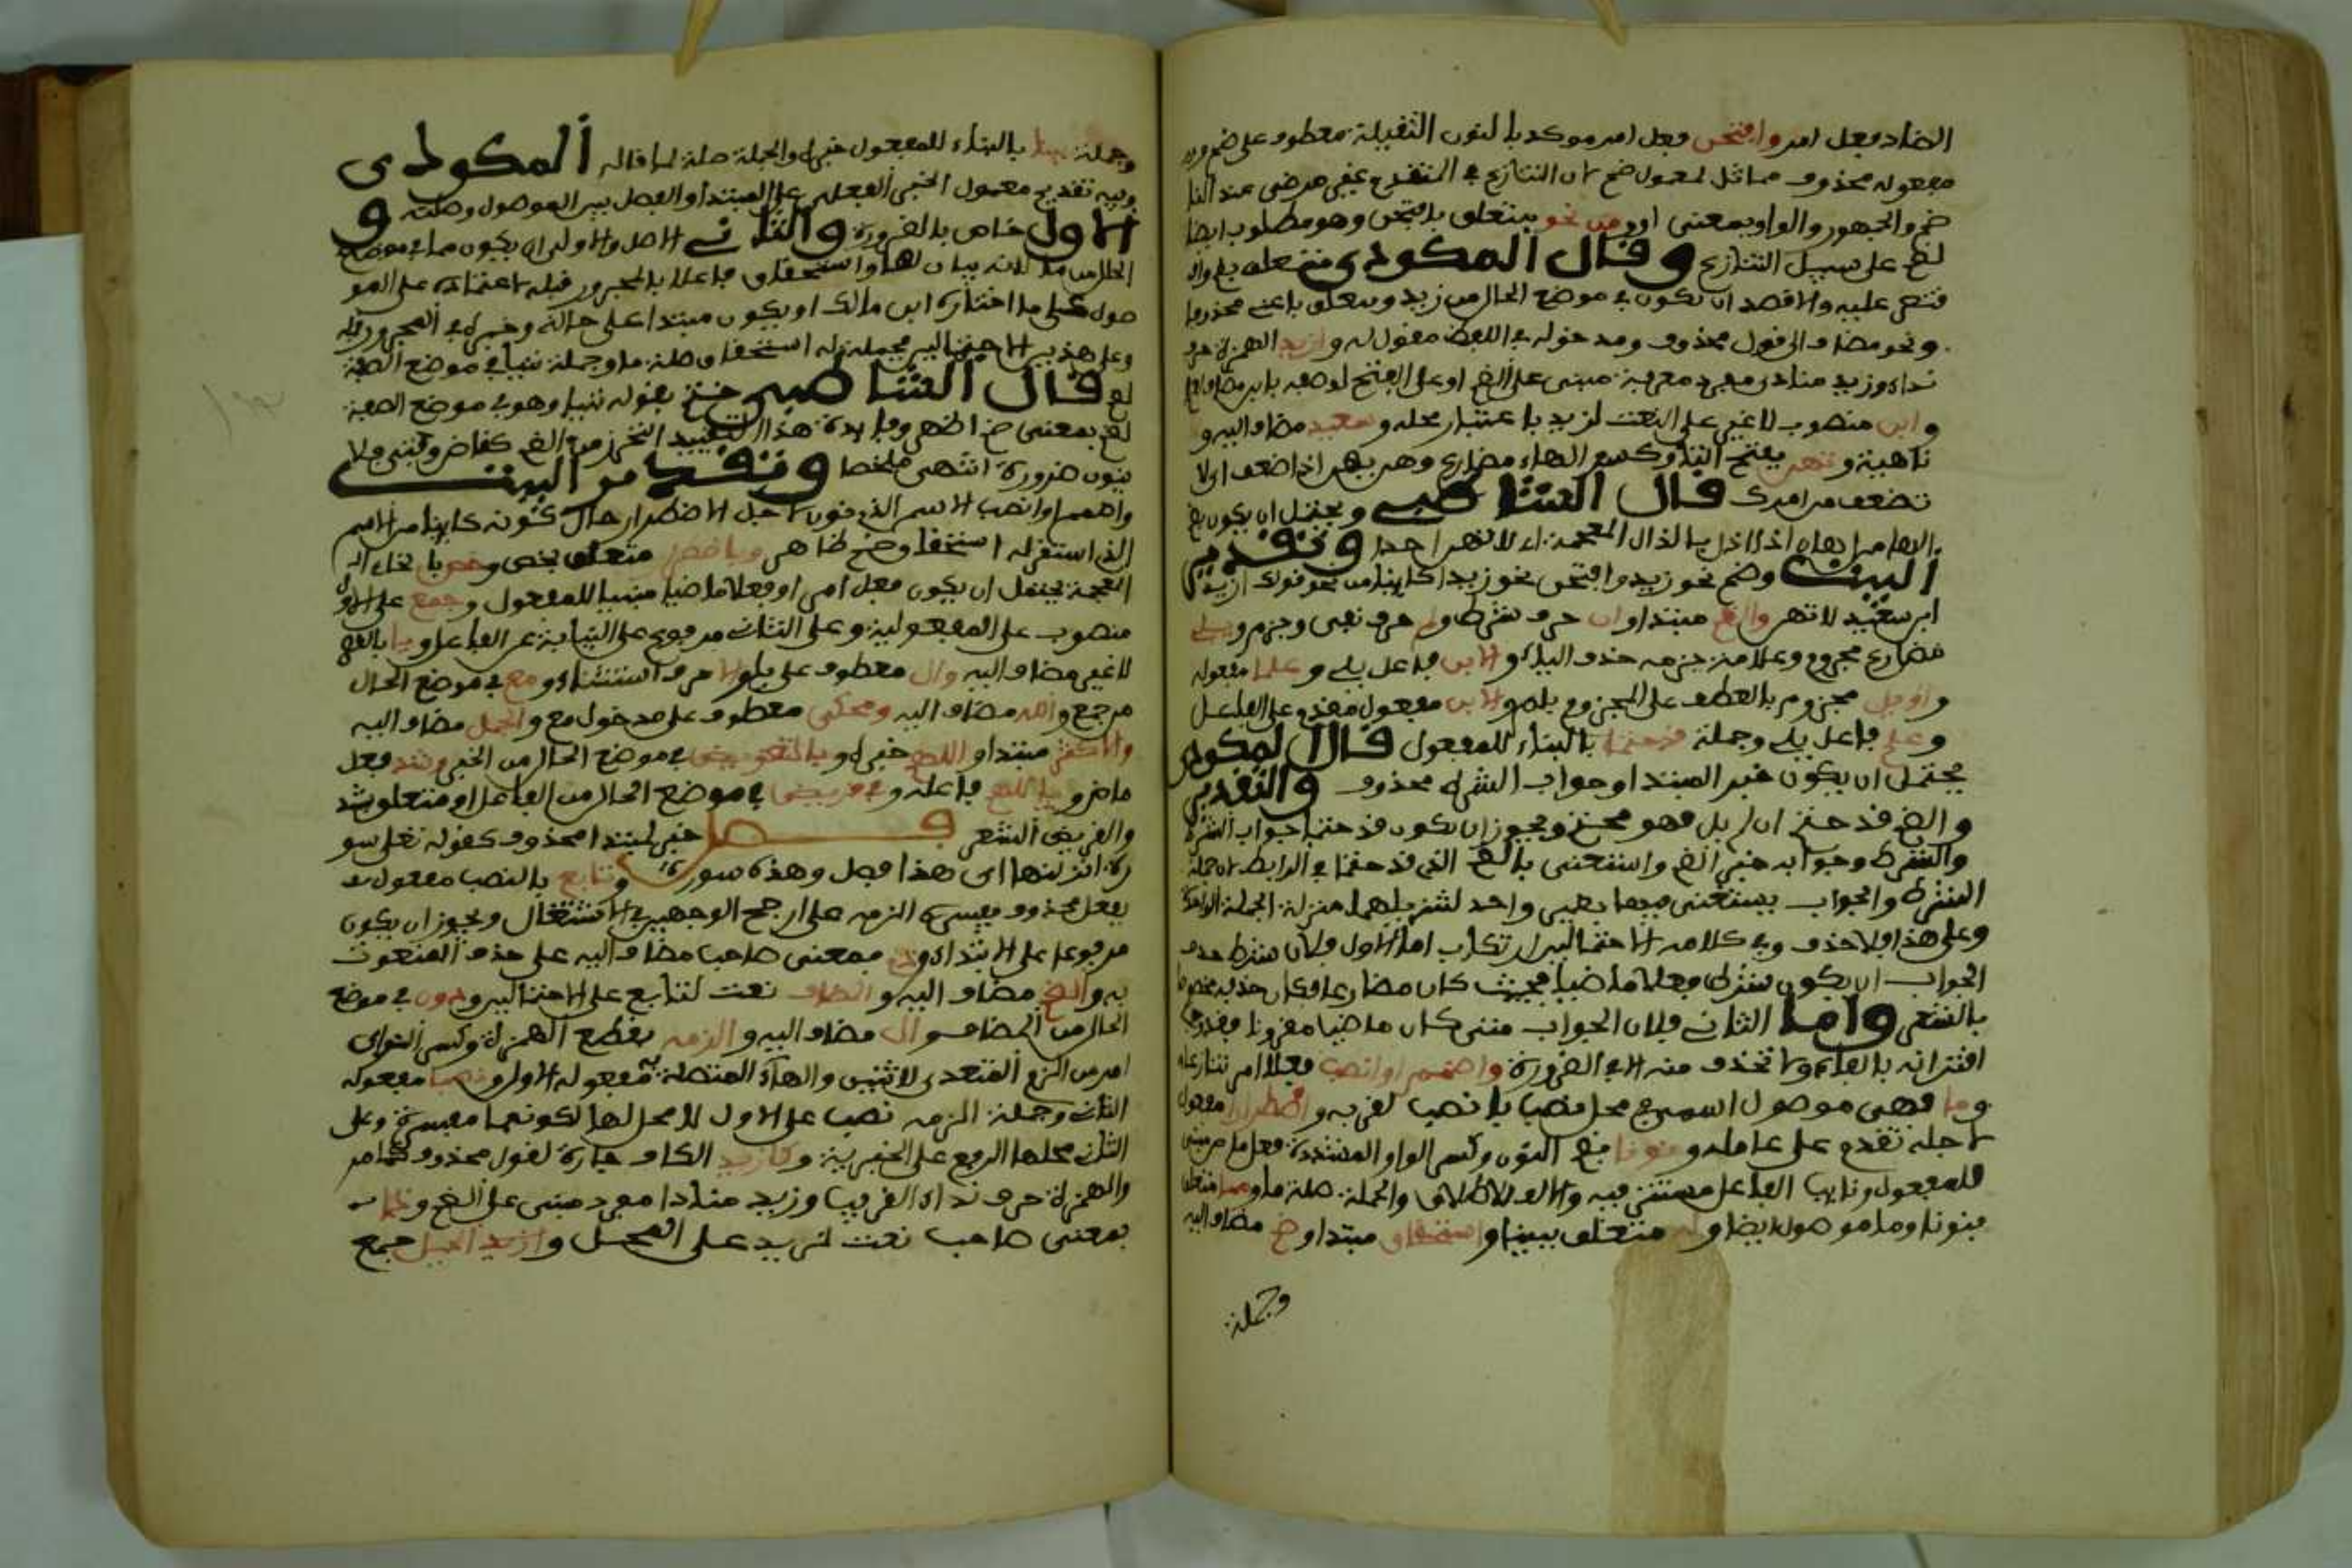 الضاد فعل امر وافتحن فعل امر موكد بالنون الثقيلة معطوف على ضم و
مفعوله محذوف مماثل لمعمول ضم لان التنازع في المتقدم غير مرضى عند النا
ظم والجمهور والواو بمعنى او ومن نحو يتعلق بافتحن وهو مطلوب ايضا
لضم على سبيل التنازع وقال المكودي متعلق
عليه والاقصد ان يكون في موضع الحال من زيد ويتعلق باعني محذوفا
ونحو مضاف الى قول محذوف ومدخوله في اللفظ مقول له وازيد الهمزة حرف
نداء وزيد منادى مفرد معرفة مبني على الضم او على الفتح لوصفه بابن مضاف
وابن منصوب لا غير على النعت لزيد باعتبار محله وسعيد مضاف اليه و
ناهية وتهن بفتح التا وكسر الهاء مضارع وهن يهن اذا ضعف اى لا
تضعف من امرك قال الشاطبي ويحتمل ان يكون بضم
اذا اذل بالذال المعجمة اى لا تهن احدا وتقدير
البيت وضم نحو زيد وافتحن نحو زيدا كاينا من نحو قولك ازيد
ابن سعيد لا تهن والضم مبتدا وان حرف شرط ولم حرف نفي وجزم ويلي
مضارع مجزوم وعلامة جزمه حذف الياء والابن فاعل يلي وعلما مفعوله
واو يل مجزوم بالعطف على المجزوم بلم والابن مفعول مقدم على الفاعل
وعلم فاعل يلي وجملة قد حتما بالبناء للمفعول قال المكودي
يحتمل ان يكون خبر المبتدا وجواب الشرط محذوف والتقدير
والضم قد حتم ان لم يل فهو محتم ويجوز ان يكون قد حتما جواب الشرط
والشرط وجوابه خبر الضم واستغنى بالضم الذي قد حتما في الرابط لان جملة
الشرط والجواب يستغنى فيهما بضمير واحد لتنزيلهما منزلة الجملة الواحدة
وعلى هذا فلا حذف وفي كلامه الاحتمالين ارتكاب اما الاول فلان شرط حذف
الجواب ان يكون شرطه فعلا ماضيا فحيث كان مضارعا فكان حذفه مخصوصا
بالشعر واما الثاني فلان الجواب متى كان ماضيا مقرونا بقد
اقترانه بالفاء ولا تحذف منه الا في الضرورة واضمم او انصب فعلا امر تنازعا
وما فهي موصول اسمي في محل نصب بانصب لقربه واضطرارا مفعول
لاجله تقدم على عامله ونونا بضم النون وكسر الواو المشددة فعل ماض مبني
للمفعول ونايب الفاعل مستتر فيه والالف للاطلاق والجملة صلة ما ومما متعلق
بنونا وما موصولة ايضا وله متعلق ببينا واستحقاق مبتدا وضم مضاف اليه
وجملة
وجملة بينا بالبناء للمفعول خبره والجملة صلة لما قاله المكودي
وفيه تقديم معمول الخبر الفعلي على المبتدا والفصل بين الموصول وصلته و
الاول خاص بالضرورة والثاني الاصل والاولى ان يكون مما في موضع
الحال من ما لانه بيان لها واستحقاق فاعلا بالمجرور قبله لاعتماده على المو
صول على ما اختاره ابن مالك او يكون مبتدا على حاله وخبره في المجرور قبله
وعلى هذين الاحتمالين فجملة له استحقاق صلة ما وجملة بينا في موضع الصفة
لضم قال الشاطبي ختم بقوله بينا وهو في موضع الصفة
لضم بمعنى ضم اظهر وفايدة هذا التقييد التحرز من الضم كقاض وفتى فلا
ينون ضرورة انتهى ملخصا وتقدير البيت
واضمم او انصب الاسم الذي نون لاجل الاضطرار حال كونه كاينا من الاسم
الذي استقر له استحقاق ضم ظاهر وباضطرار متعلق بخص وخص بالخاء
المعجمة يحتمل ان يكون فعل امر او فعلا ماضيا مبنيا للمفعول وجمع على الاول
منصوب على المفعولية وعلى الثاني مرفوع على النيابة عن الفاعل ويا بالقصر
لا غير مضاف اليه وال معطوف على يا والا حرف استثناء ومع في موضع الحال
من جمع والله مضاف اليه ومحكي معطوف على مدخول مع والجمل مضاف اليه
والاكثر مبتدا واللهم خبره وبالتعويض في موضع الحال من الخبر وشذ فعل
ماض ويا اللهم فاعله وفي قريض في موضع الحال من الفاعل او متعلق بشذ
والقريض الشعر فصل خبر لمبتدا محذوف كقوله تعلى سو
رة انزلنها اى هذا فصل وهذه سورة وتابع بالنصب مفعول
بفعل محذوف يفسره الزمه على ارجح الوجهين في الاشتغال ويجوز ان يكون
مرفوعا على الابتداء وذي بمعنى صاحب مضاف اليه على حذف المنعوت
به والضم مضاف اليه والمضاف نعت لتابع على الاحتمالين ودون في موضع
الحال من المضاف وال مضاف اليه والزمه بقطع الهمزة وكسر الزاي
امر من الزم المتعدي لاثنين والهاء المتصلة به مفعوله الاول ونصبا مفعوله
الثاني وجملة الزمه نصبا على الاول لا محل لها لكونها مفسرة وعلى
الثاني محلها الرفع على الخبرية وكازيد الكاف جارة لقول محذوف كما مر
والهمزة حرف نداء القريب وزيد منادا مفرد مبني على الضم وذا
بمعنى صاحب نعت لزيد على المحل وازيد الحيل جمع